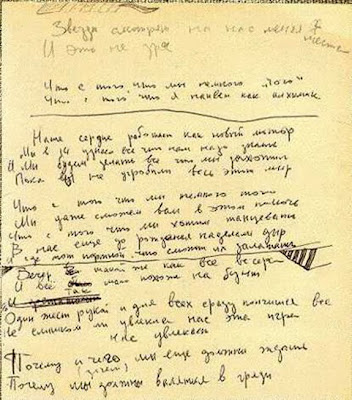 Звезды смотрят на нас меня
места
И это не зря
Что с того, что мы немного "того"
Что с того что я наивен как алхимик
Наше сердце работает как новый мотор
Мы в 14 знаем все что нам надо знать
И мы будем делать все что мы захотим
Пока вы не угробили весь этот мир
Что с того что мы немного того
Мы даже сможем вам в этом помочь
Что с того что мы хотим танцевать
В нас еще до рожденья наделали дыр
И где тот портной, что сможет их залатать
Вечер такой же как все вечера
И все так похоже на бунт
Один жест рукой и для всех сразу кончится все
Не слишком ли увлекла нас эта игра
нас увлекает
Почему и чего мы еще должны ждать
(зачем)
Почему мы должны валяться в грязи